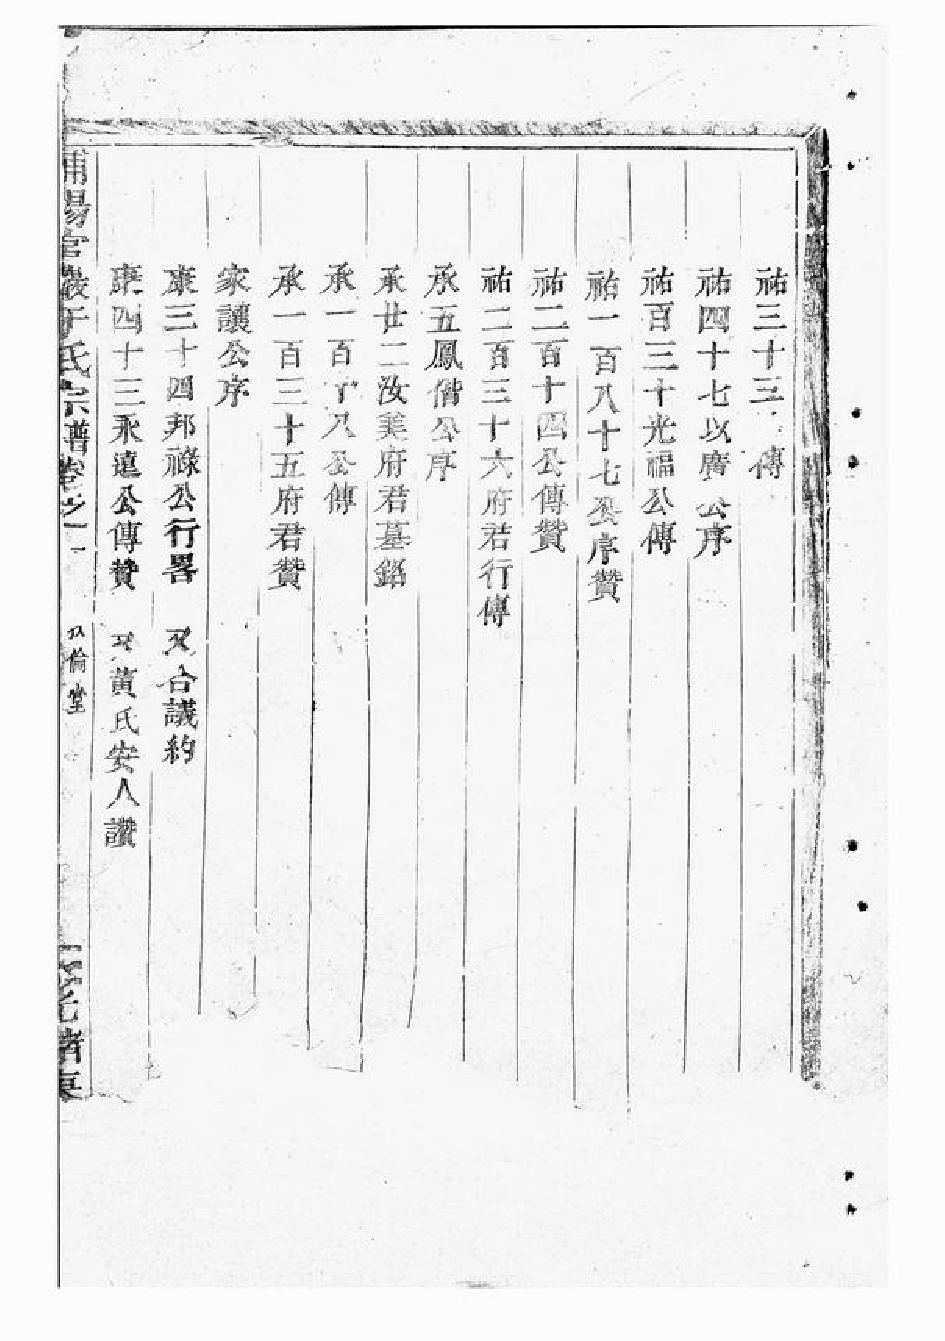 祐三十三傳
祐四十七以廣公序
祐百三十光福公傳
祐一百八十七公序贊
祐二百十四公傳贊
祐二百三十六府君行傳
承五鳳偕公序
承廿二汝美府君墓銘
承一百十八公傳
承一百三十五府君贊
家讓公序
康三十四邦祿公行畧 又合議約
康四十三永遠公傳贊 又黃氏安人讚
浦陽官巖于氏宗譜卷之一 倫堂 光緒